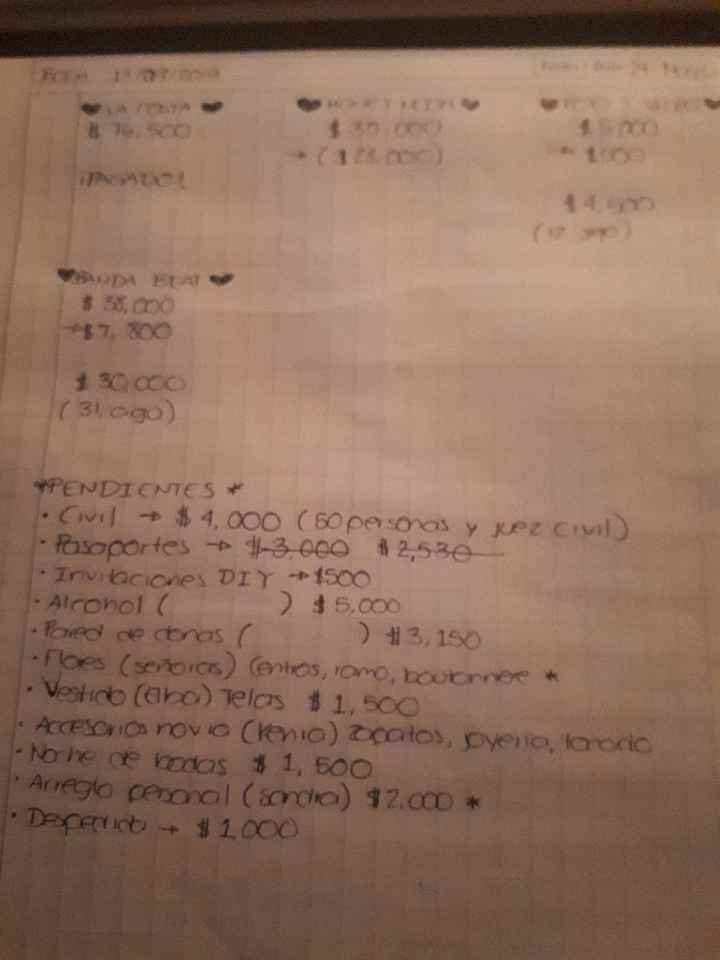 BODA
♥ LA ♥
♥ HONEY MOON ♥
♥ FOTO Y VIDEO ♥
$ 76,500
$ 30,000
$5,000
→ ($ 23,000)
→ $500
¡PAGADO!
$4,500
♥ BANDA BEAT ♥
$ 38,000
→ $7,800
$ 30,000
(31, ago)
*PENDIENTES *
• Civil → $ 4,000 (50 personas y juez civil)
• Pasaportes → $ 3,000 $2,530
• Invitaciones DIY → $500
• Alcohol ( ) $ 5,000
• Pared de donas ( ) $ 3,150
• Flores (señoras) (entros, ramo, boutonniere *
• Vestido (Elba) Telas $ 1,500
• Accesorios novia (Kenia) zapatos, joyería, tocado
• Noche de bodas $ 1,500
• Arreglo personal (Sandra) $2,000 *
• Despedida → $ 1,000